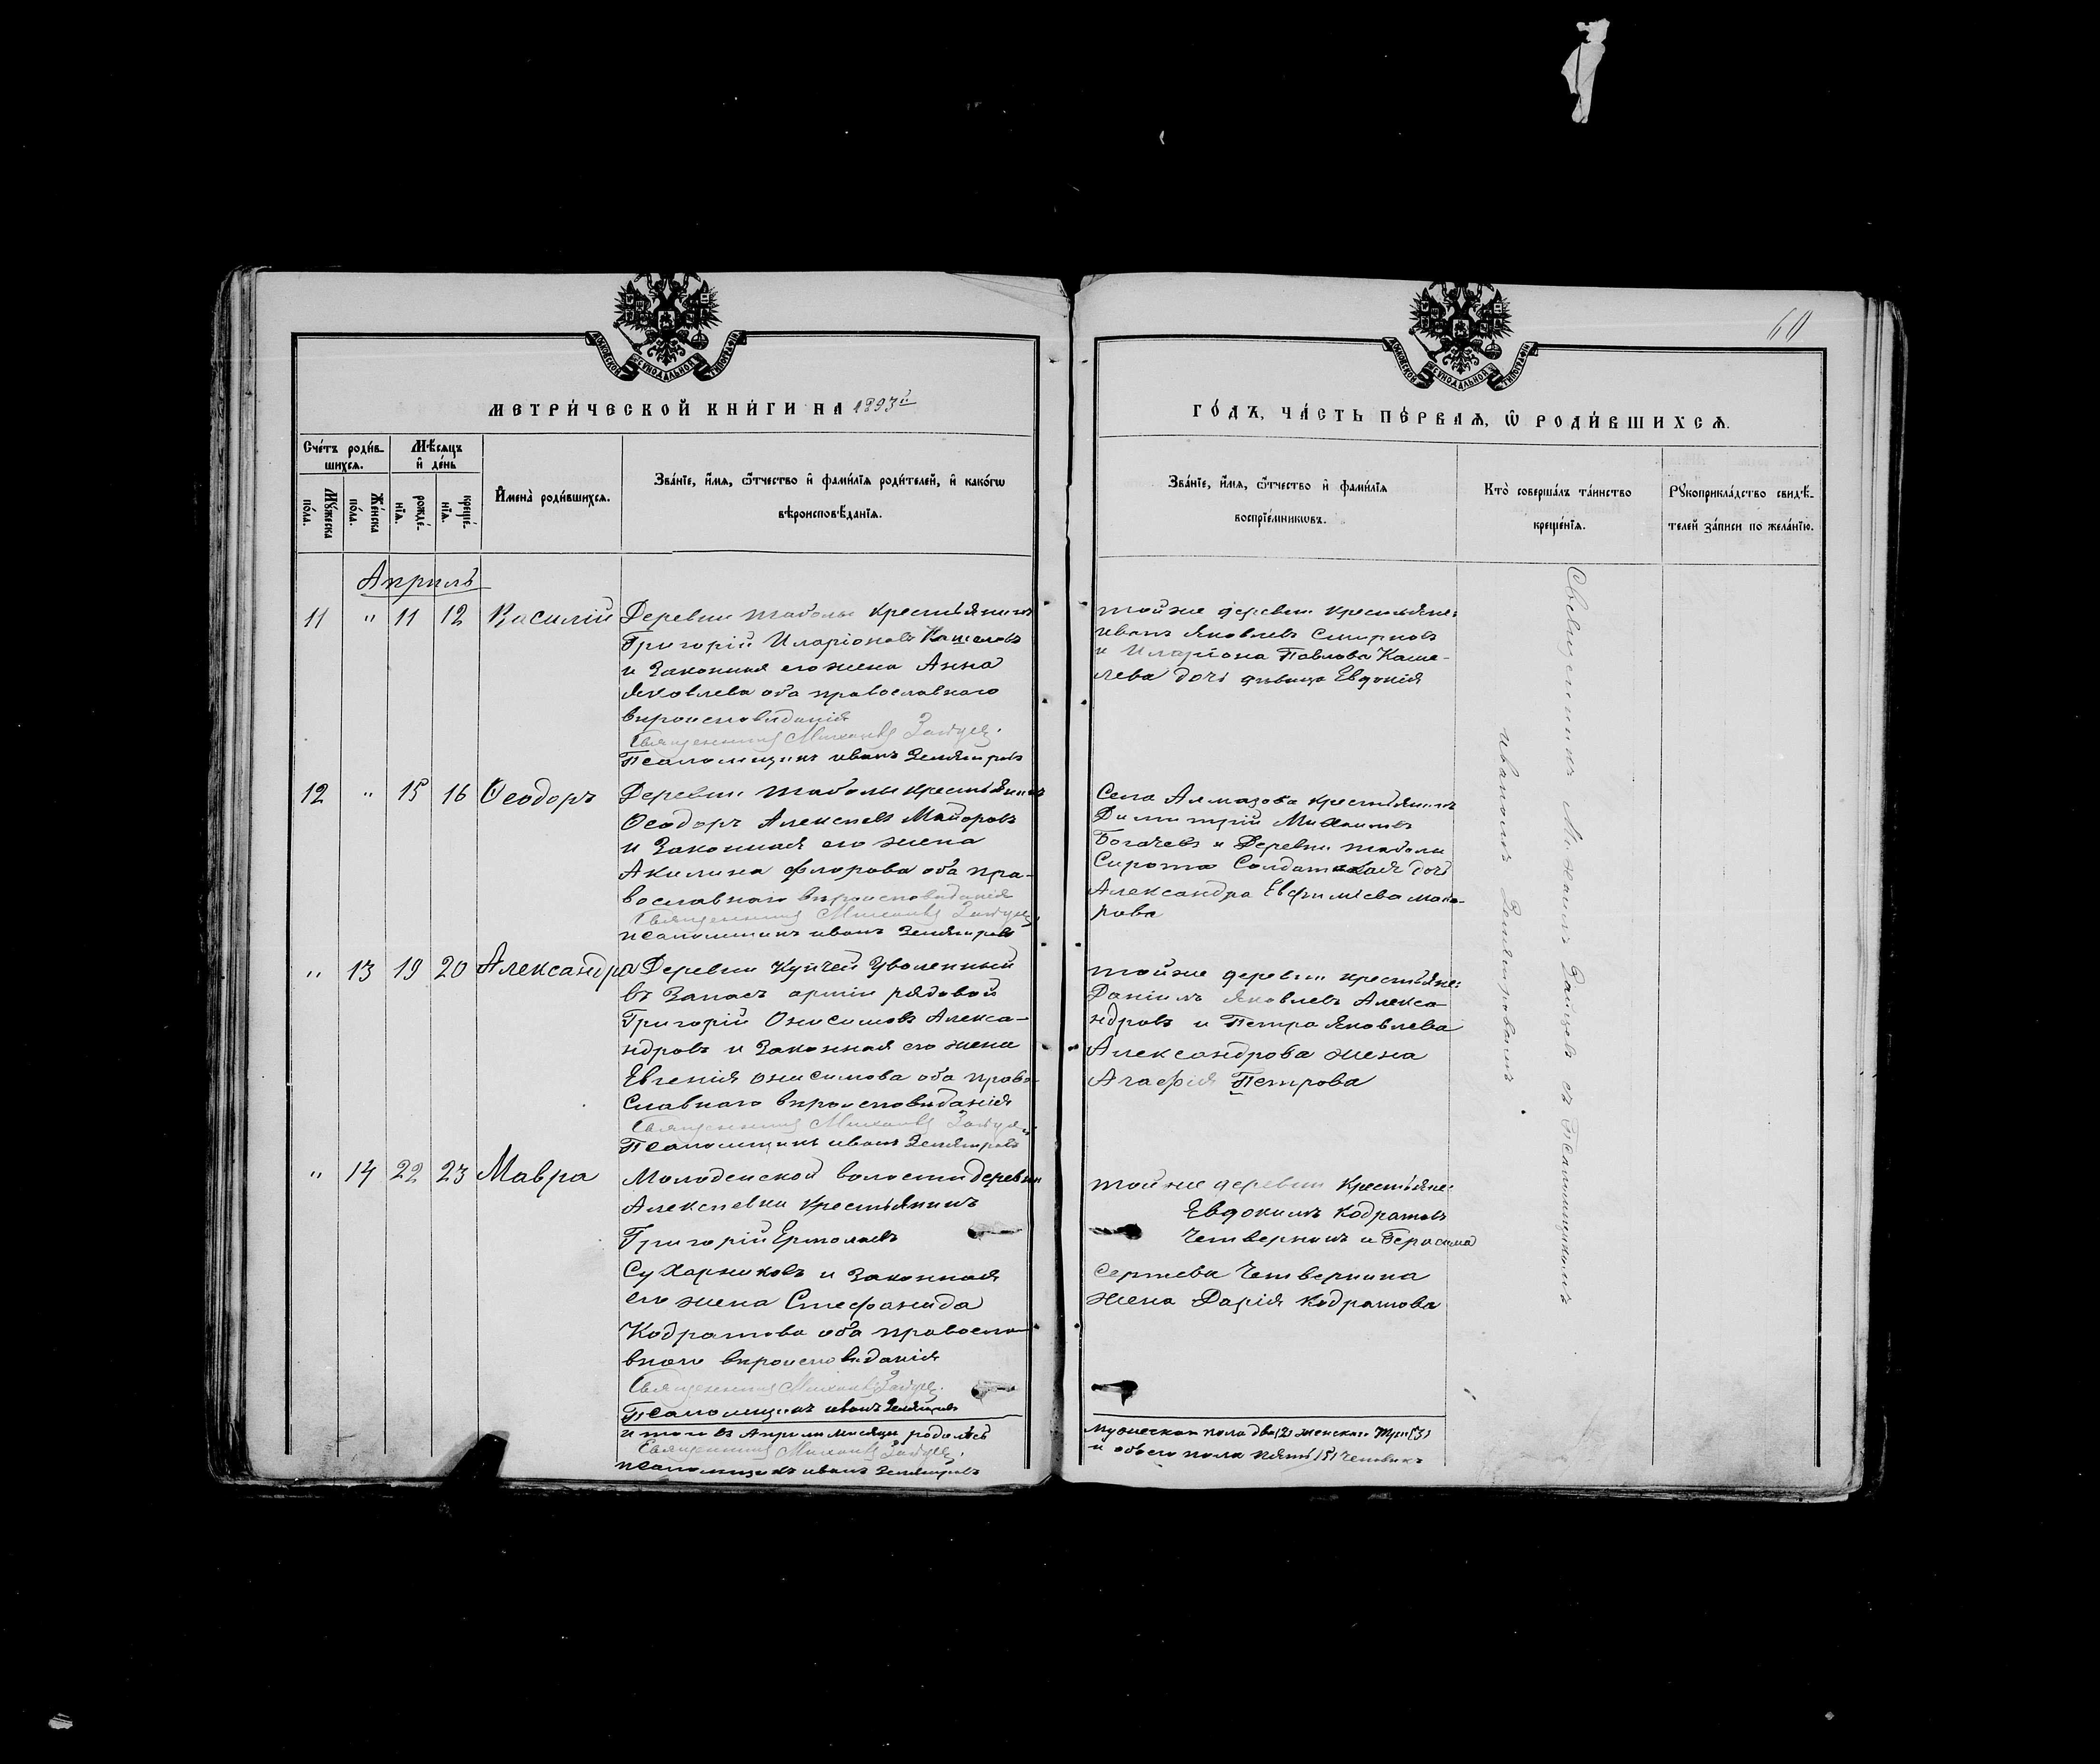 60
МОСКОВСКОЙ СѴНОДАЛЬНОЙ ТИПОГРАФІИ
МОСКОВСКОЙ СѴНОДАЛЬНОЙ ТИПОГРАФІИ
МЕТРИ́ЧЕСКОЙ КНИ́ГИ НА 1893й
ГО́ДЪ, ЧА́СТЬ ПЕ́РВАЯ, Ѿ РОДИ́ВШИХСЯ.
Сче́тъ роди́в-
шихся.
Мѣ́сяцъ
и҆ де́нь
Мꙋ́жеска
по́ла.
Же́нска
по́ла.
рожде́-
нїѧ.
креще́-
нїѧ.
И҆мена̀ роди́вшихся.
Зва́нїе, и҆́мѧ, ѻ҆́тчество и҆ фами́лїѧ роди́телей, и҆ како́гѡ
вѣроисповѣ́данїѧ.
Зва́нїе, и҆́мѧ, ѻ҆́тчество и҆ фами́лїѧ
воспрїе́мникѡвъ.
Кто̀ соверша́лъ та́инство
креще́нїѧ.
Рꙋкоприкла́дство свидѣ́-
телей за́писи по жела́нїю.
Априль
11 " 11 12 Василій
Деревни Таболы крестьянинъ
Григорій Иларіоновъ Кашелевъ
и законная его жена Анна
Яковлева оба православнаго
вѣроисповѣданія
Священникъ Михаилъ Зайцев.
Псаломщикъ Иванъ
тойже деревни крестьяне:
Иванъ Яковлевъ Смирновъ
и Иларіона Павлова Каше-
лева дочь дѣвица Евдокія
12 " 15 16 Ѳеодоръ
Деревни Таболы крестьянинъ
Ѳеодоръ Алексѣевъ Майоровъ
и законная его жена
Акилина Флорова оба пра-
вославнаго вѣроисповѣданія
Священникъ Михаилъ Зайцев.
Псаломщикъ Иванъ
Села Алмазова крестьянинъ
Димитрій Михаиловъ
Богачевъ и деревни Таболы
Сирота Солдатская дочь
Александра Евфиміева Майо-
рова
" 13 19 20 Александра
Деревни Купчей Уволенный
въ Запасъ арміи рядовой
Григорій Онисимовъ Алекса-
ндровъ и законная его жена
Евгенія Онисимова оба право-
славнаго вѣроисповѣданія
Священникъ Михаилъ Зайцев.
Псаломщикъ Иванъ
тойже деревни крестьяне:
Даніилъ Яковлевъ Алекса-
ндровъ и Петра Яковлева
Александрова жена
Агафія Петрова
" 14 22 23 Мавра
Молоденской волости деревни
Алексѣевки крестьянинъ
Григорій Ермолаевъ
Сухарниковъ и законная
его жена Стефанида
Кодратова оба правосла-
внаго вѣроисповѣданія
Священникъ Михаилъ Зайцев.
Псаломщикъ Иванъ
тойже деревни крестьяне:
Евдокимъ Кодратовъ
Четвернинъ и Герасима
Сергѣева Четвернина
жена Дарія Кодратова
Священникъ Михаилъ Зайцевъ съ Псаломщикомъ
Иваномъ
Итого въ Апрѣлѣ мѣсяцѣ родилось
Священникъ Михаилъ Зайцев.
Псаломщикъ Иванъ
мужескаго пола два (2) женскаго три (3)
и обоего пола пять (5) человѣкъ